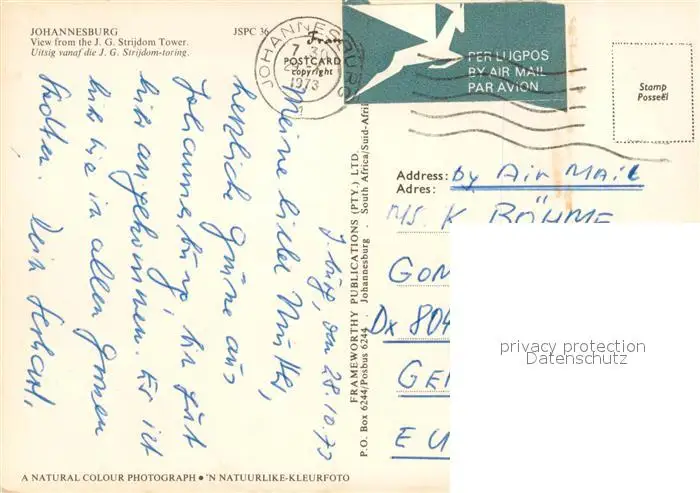 JOHANNESBURG
View from the J. G. Strijdom Tower.
Uitsig vanaf die J. G. Strijdom-toring.
JSPC 36
JOHANNESBURG
1973
POSTCARD
copyright
PER LUGPOS
BY AIR MAIL
PAR AVION
Stamp
Posseël
J'burg, den 28.10.73
Meine liebe Mutter,
herzliche Grüsse aus
Johannesburg, bin gut
hier angekommen. Es ist
hier wie in allen grossen
Städten. Dein Gerhard.
FRAMEWORTHY PUBLICATIONS (PTY.) LTD.
P.O. Box 6244/Posbus 6244 . Johannesburg . South Africa/Suid-Afri
Address: By AIR MAIL
Adres:
K BÖHME
GOM
Dx 804
GE
EU
privacy protection
Datenschutz
A NATURAL COLOUR PHOTOGRAPH ● 'N NATUURLIKE-KLEURFOTO